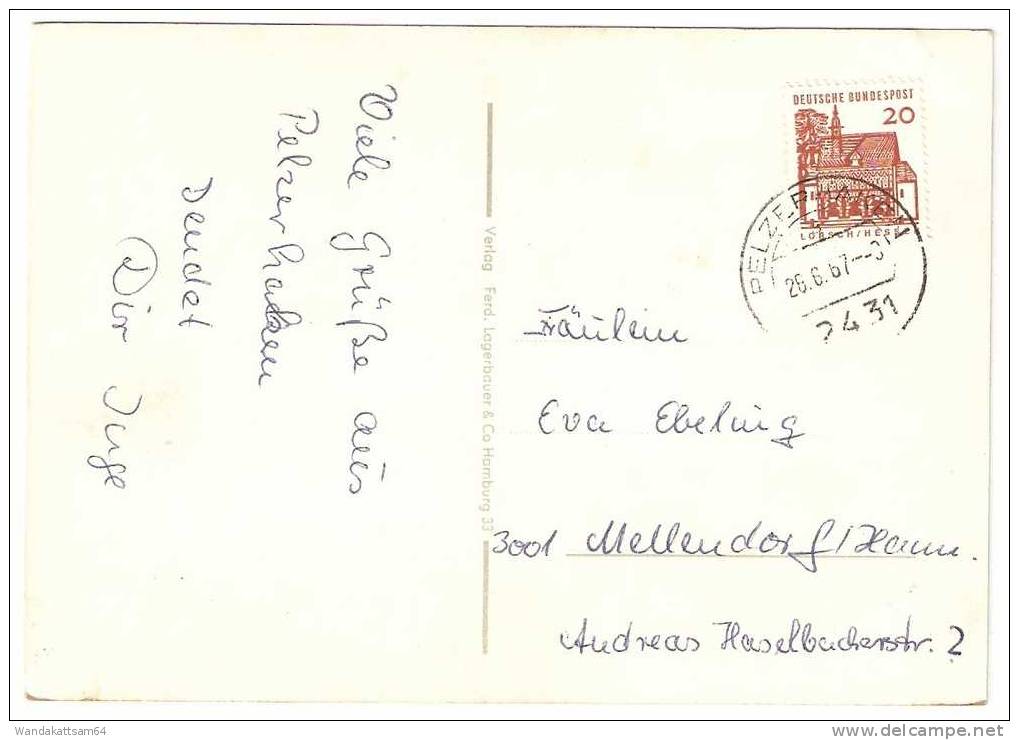 Viele Grüße aus
Pelzerhaken
sendet
Dir Inge
Verlag Ferd. Lagerbauer & Co Hamburg 33
DEUTSCHE BUNDESPOST
20
LORSCH/HESSEN
PELZERHAKEN
26.6.67
2431
Fräulein
Eva Ebeling
3001 Mellendorf/Hann.
Andreas Haselbacherstr. 2
Wandakattsam64
delcampe.net